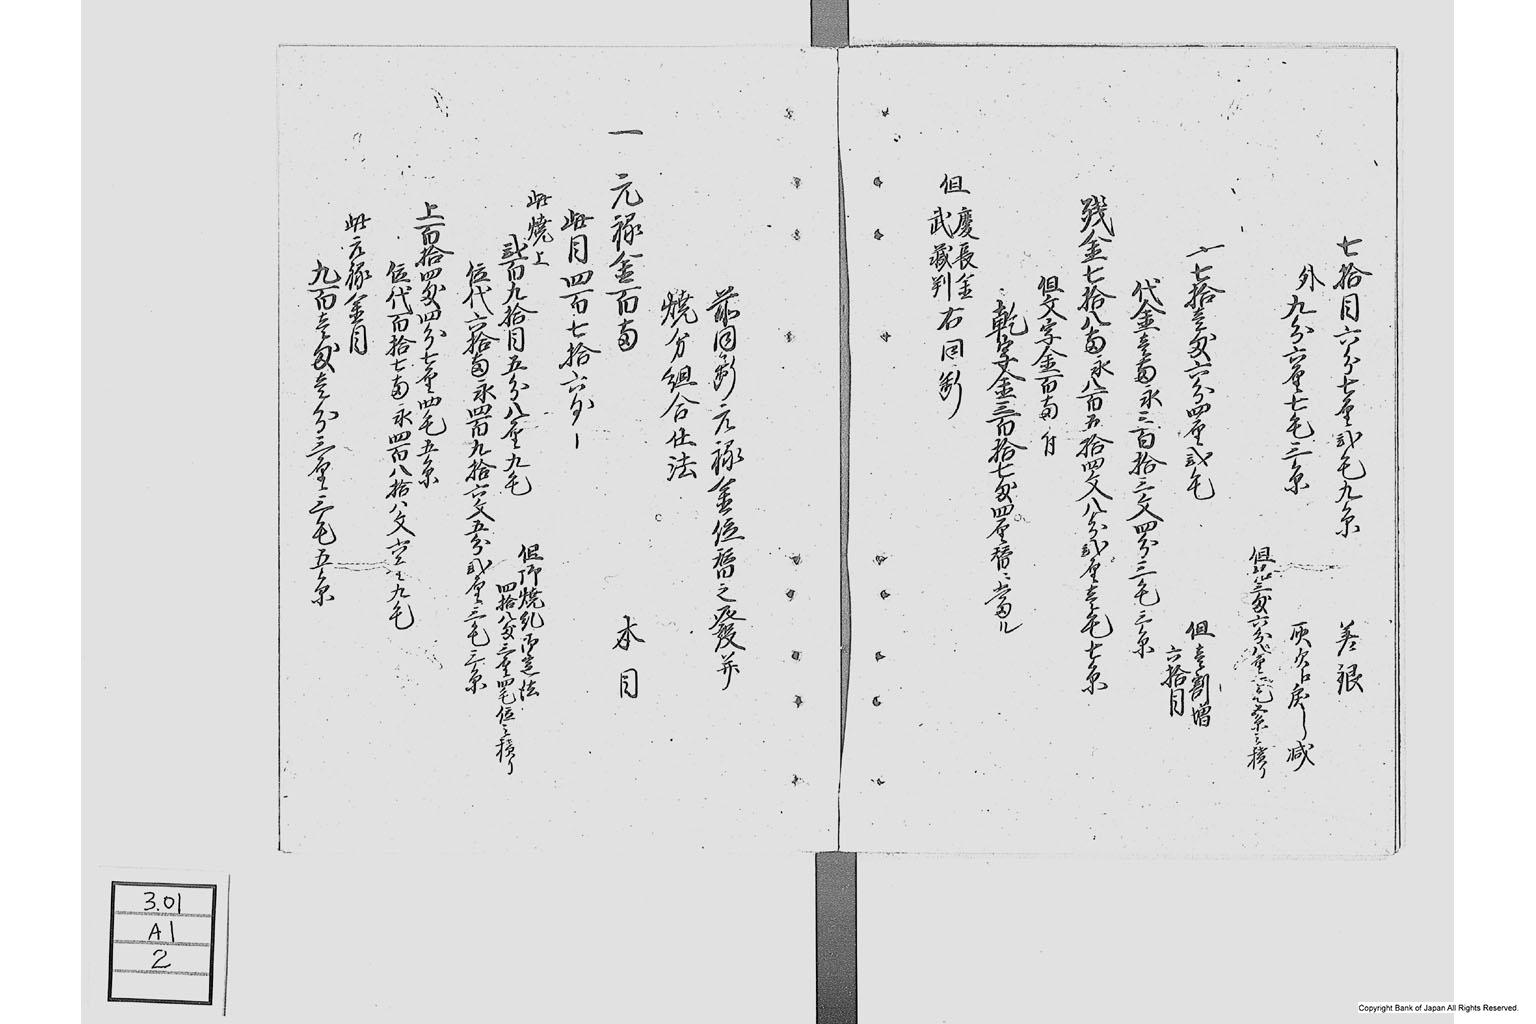 七拾目六分七厘弐毛九糸　差銀
外九分六厘七毛三糸　戻し減
一七拾壱匁六分四厘弐毛
但壱割増
六拾目
代金壱両永三百拾二文四分三毛三糸
残金七拾八両永八百五拾四文八分弐厘壱毛七糸
但文字金百両ニ付
乾字金三百拾七匁四厘積ニ当ル
但
慶長金
武蔵判
右同断
前同断元禄金位替之発并
焼分組合仕法
一　元禄金百両　本目
此目四百七拾六匁
此焼上
弐百九拾目五分八厘九毛
四拾八匁三厘四毛位之積り
位代六拾両永四百九拾六文五分弐厘三毛三糸
上百拾四匁四分七厘四毛五糸
位代百拾七両永四百八拾八文
此元禄金目
九百壱匁壱分三厘三毛五糸
3.01
A1
2
Copyright Bank of Japan All Rights Reserved.